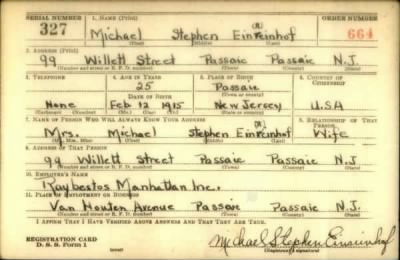 SERIAL NUMBER 1. NAME (Print) ORDER NUMBER
(R)
327 Michael Stephen Einreinhof 664
(First) (Middle) (Last)
2. ADDRESS (Print)
99 Willett Street Passaic Passaic N.J.
(Number and street or R. F. D. number) (Town) (County) (State)
3. TELEPHONE 4. AGE IN YEARS 5. PLACE OF BIRTH 6. COUNTRY OF CITIZENSHIP
25 Passaic
DATE OF BIRTH (Town or county)
None Feb 12 1915 New Jersey U.S.A
(Exchange) (Number) (Mo.) (Day) (Yr.) (State or country)
7. NAME OF PERSON WHO WILL ALWAYS KNOW YOUR ADDRESS 8. RELATIONSHIP OF THAT PERSON
(R)
Mrs. Michael Stephen Einreinhof Wife
(Mr., Mrs., Miss) (First) (Middle) (Last)
9. ADDRESS OF THAT PERSON
99 Willett Street Passaic Passaic N.J.
(Number and street or R. F. D. number) (Town) (County) (State)
10. EMPLOYER'S NAME
Raybestos Manhattan Inc.
11. PLACE OF EMPLOYMENT OR BUSINESS
Van Houten Avenue Passaic Passaic N.J.
(Number and street or R. F. D. number) (Town) (County) (State)
I AFFIRM THAT I HAVE VERIFIED ABOVE ANSWERS AND THAT THEY ARE TRUE.
REGISTRATION CARD
D. S. S. Form 1 (over) Michael Stephen Einreinhof
(Registrant's signature)